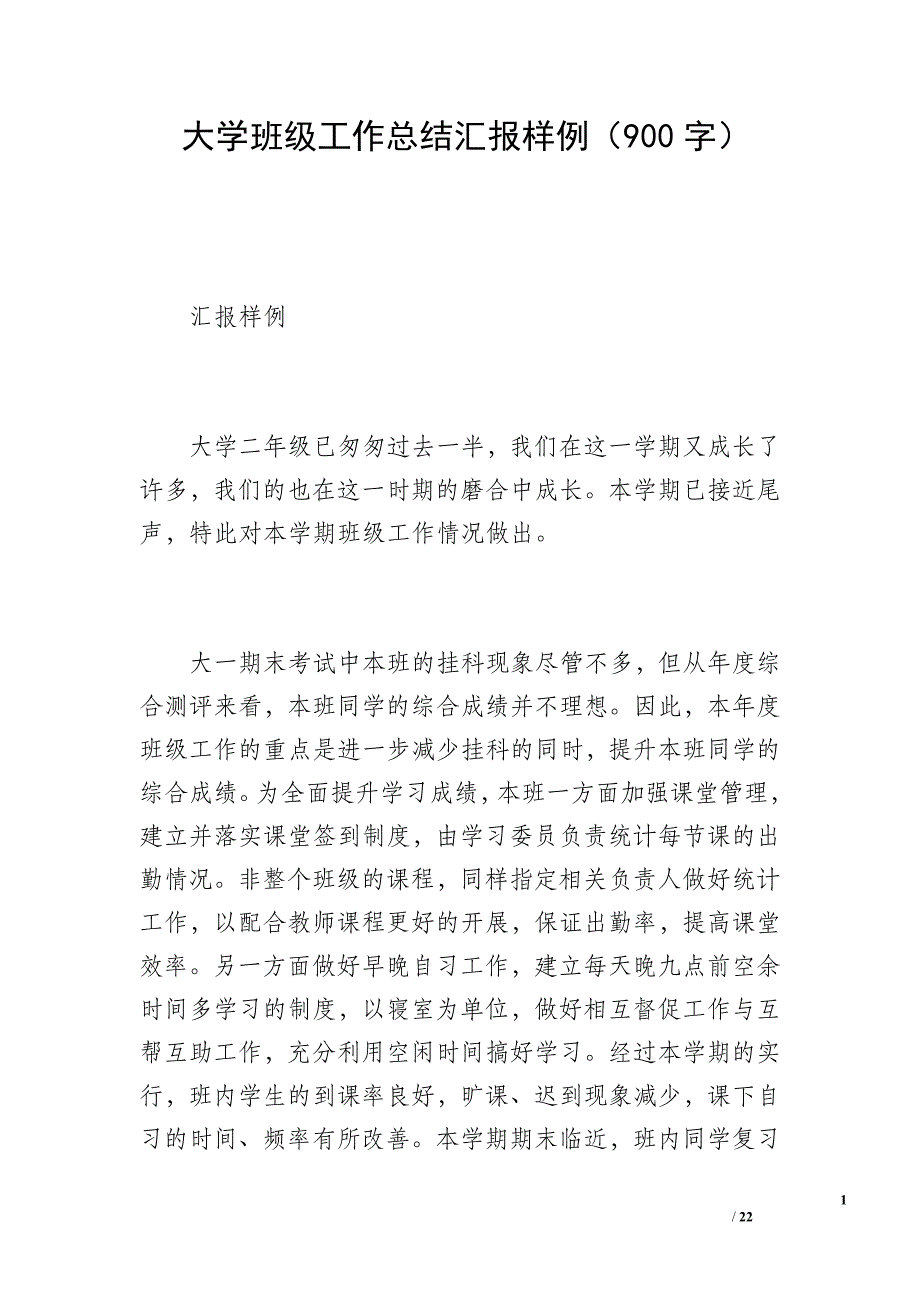 大学班级工作总结汇报样例（900 字）
汇报样例
大学二年级已匆匆过去一半，我们在这一学期又成长了
许多，我们的也在这一时期的磨合中成长。本学期已接近尾
声，特此对本学期班级工作情况做出。
大一期末考试中本班的挂科现象尽管不多，但从年度综
合测评来看，本班同学的综合成绩并不理想。因此，本年度
班级工作的重点是进一步减少挂科的同时，提升本班同学的
综合成绩。为全面提升学习成绩，本班一方面加强课堂管理，
建立并落实课堂签到制度，由学习委员负责统计每节课的出
勤情况。非整个班级的课程，同样指定相关负责人做好统计
工作，以配合教师课程更好的开展，保证出勤率，提高课堂
效率。另一方面做好早晚自习工作，建立每天晚九点前空余
时间多学习的制度，以寝室为单位，做好相互督促工作与互
帮互助工作，充分利用空闲时间搞好学习。经过本学期的实
行，班内学生的到课率良好，旷课、迟到现象减少，课下自
习的时间、频率有所改善。本学期期末临近，班内同学复习
1
/ 22